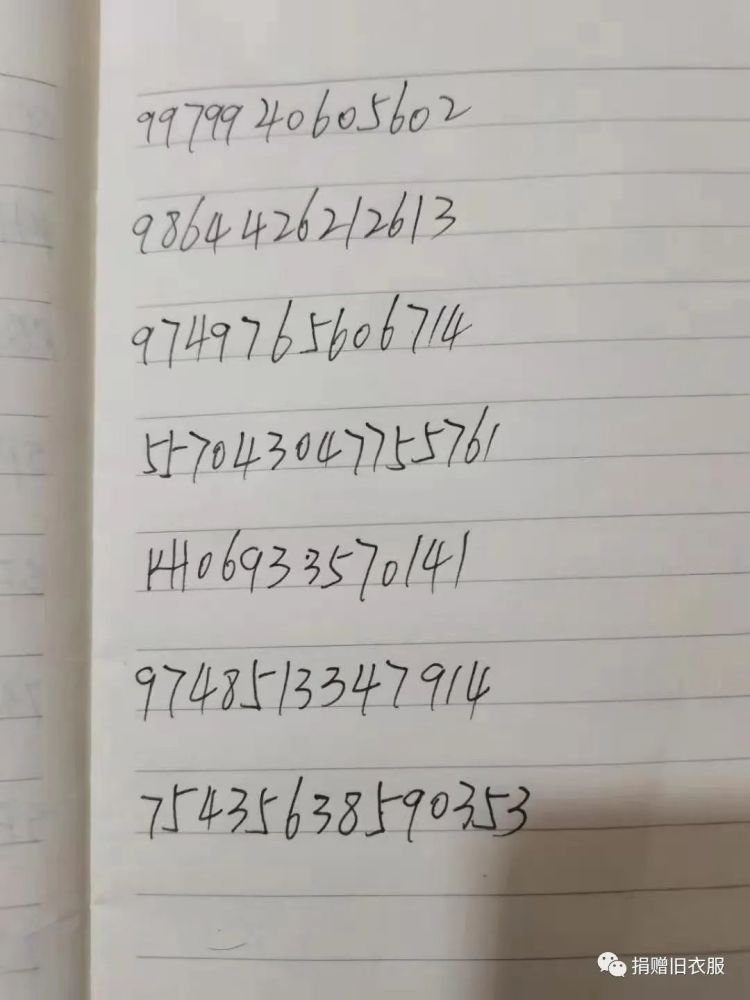 9979940605602
9864426212613
9749765606714
557043047755761
KH06933570141
9748513347914
754356385903​53
捐赠旧衣服